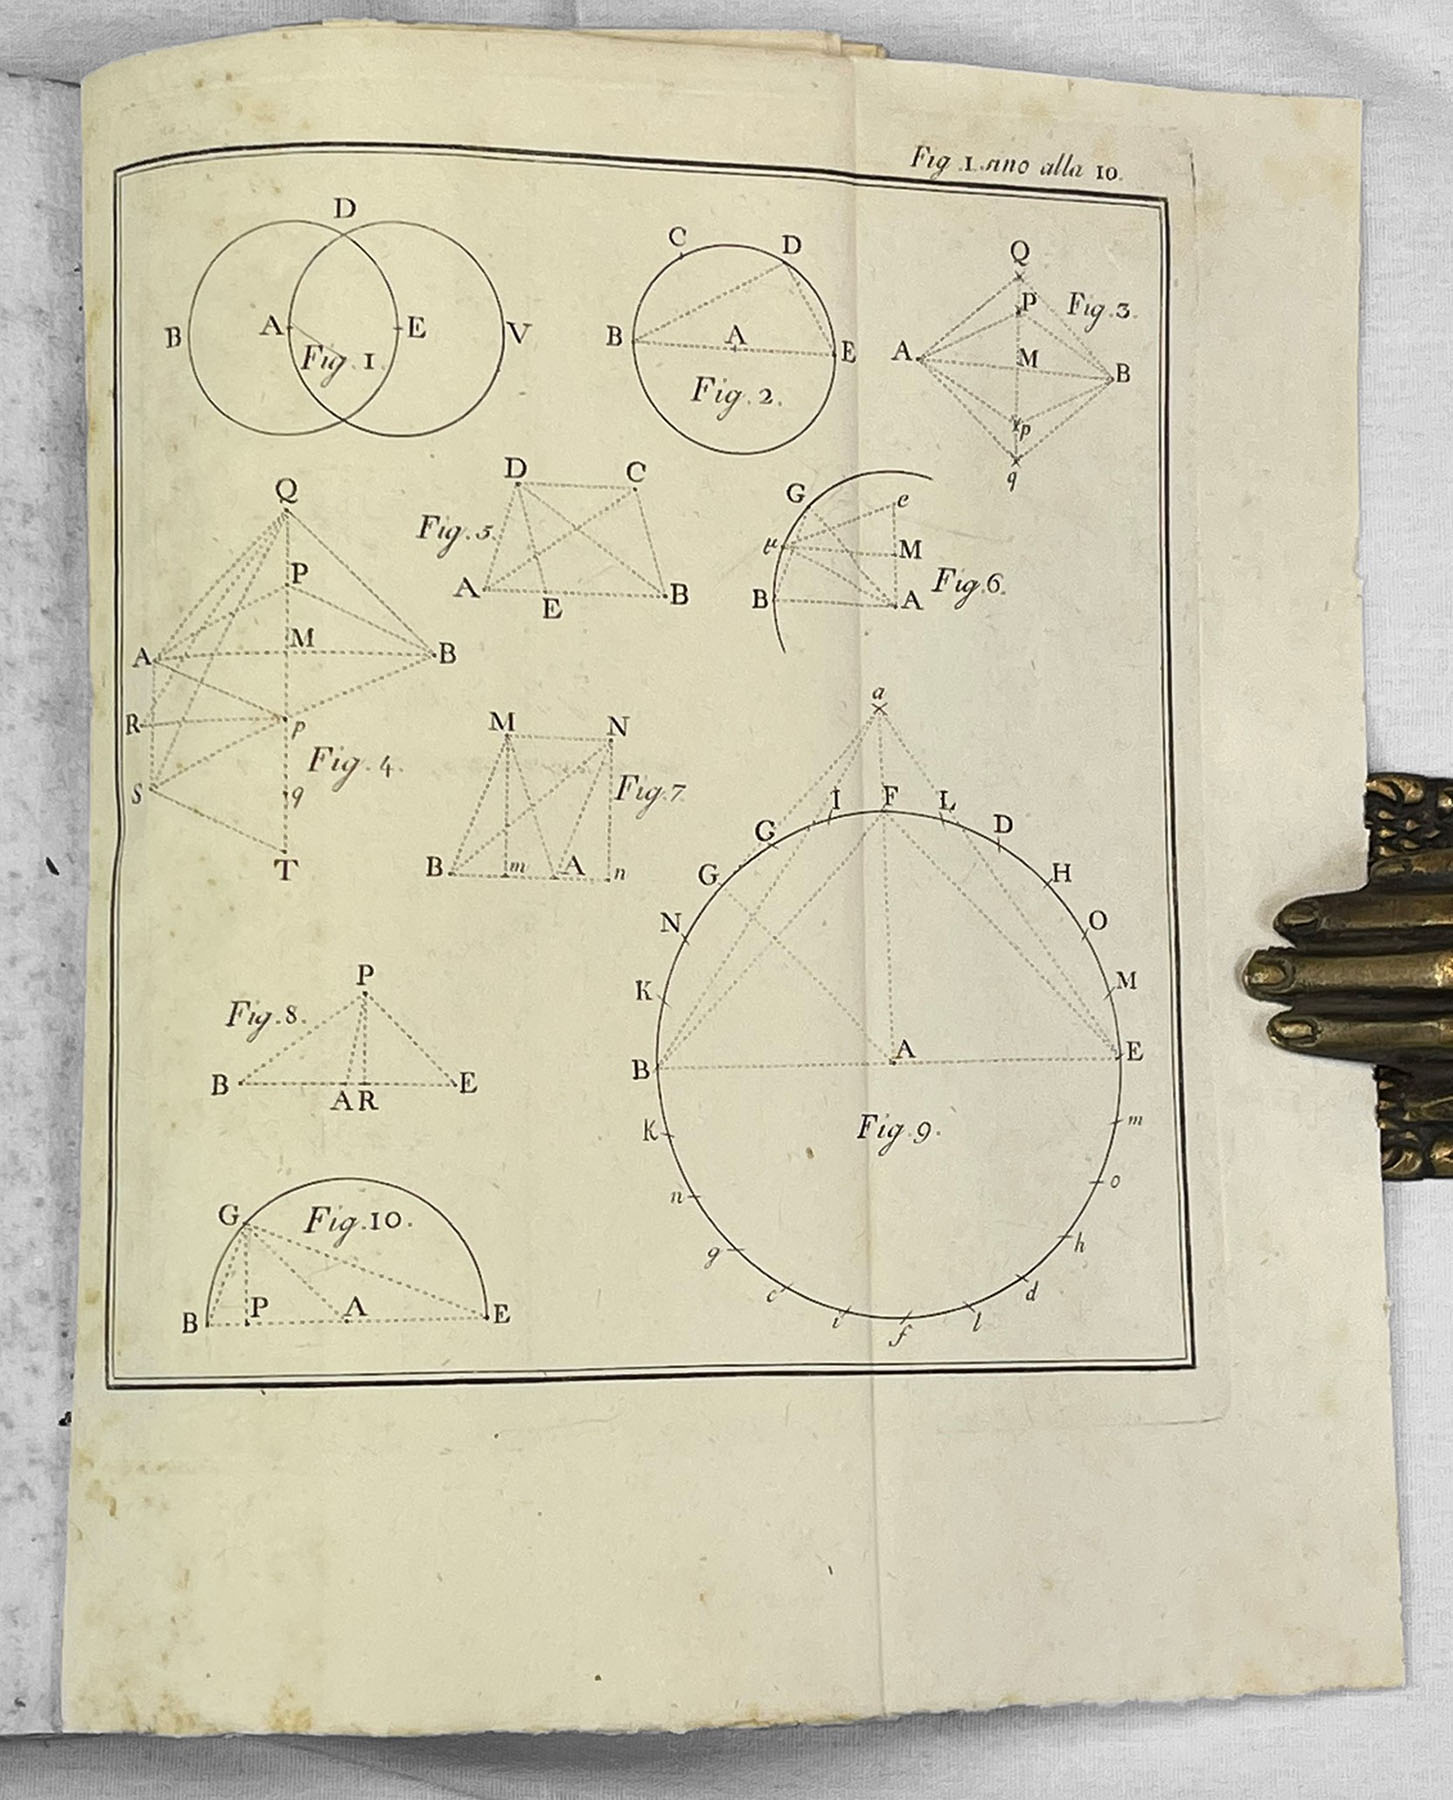 Fig. 1. sino alla 10.
D
B A E V
Fig. 1.
C D
B A E
Fig. 2.
Q
P Fig. 3.
A M B
p
q
Q
P
M
A B
R p
Fig. 4.
S q
T
D C
Fig. 5.
A E B
G e
μ M
Fig. 6.
B A
M N
Fig. 7
B m A n
P
Fig. 8.
B A R E
a
I F L
C D
G H
N O
K M
B A E
Fig. 9.
K m
n o
g h
c d
i f l
G Fig. 10.
B P A E